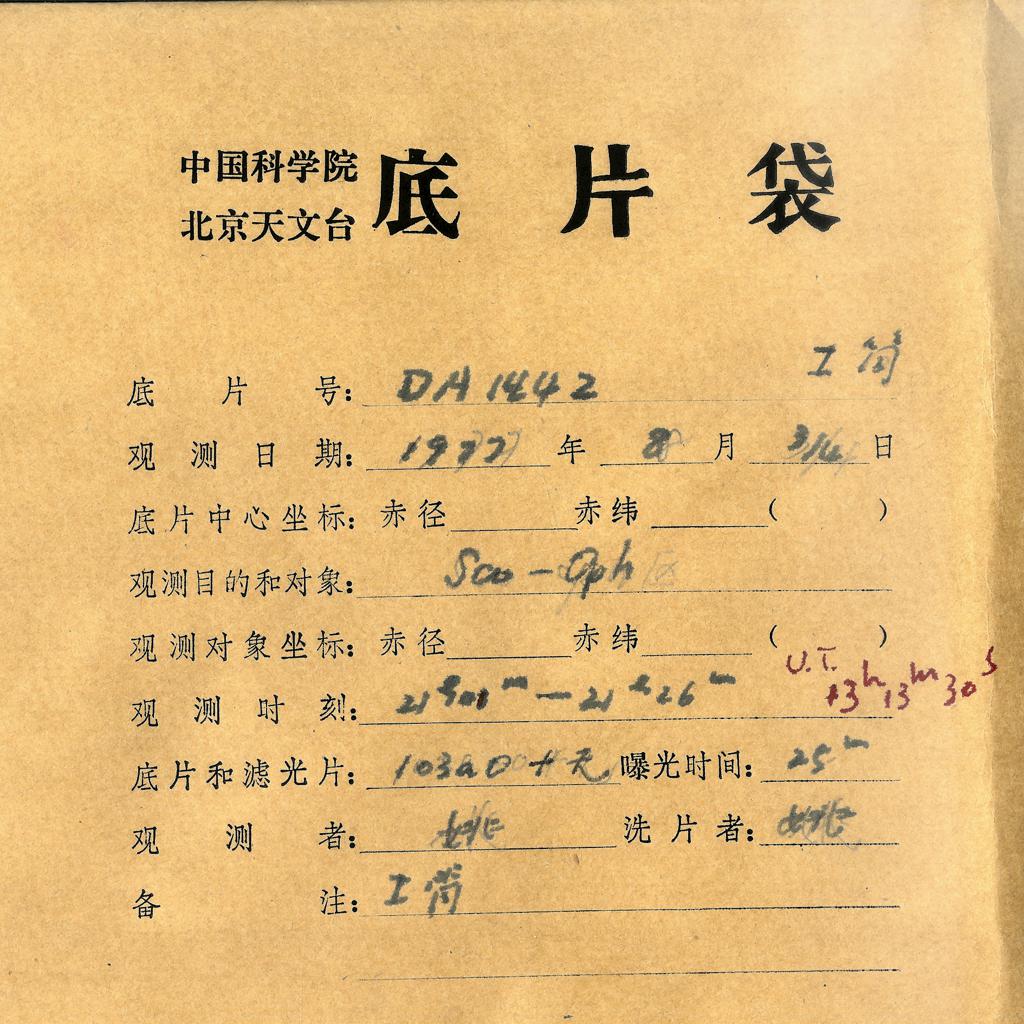 中国科学院
北京天文台
底片袋
工筒
底片号: DA1442
观测日期: 1977年 8月 3/4日
底片中心坐标: 赤径 赤纬 ( )
观测目的和对象: Sco-Oph区
观测对象坐标: 赤径 赤纬 ( )
U.T.
观测时刻: 21h01m—21h26m 13h13m30s
底片和滤光片: 103aO+天 曝光时间: 25m
观测者: 姚 洗片者: 姚
备注: 工筒